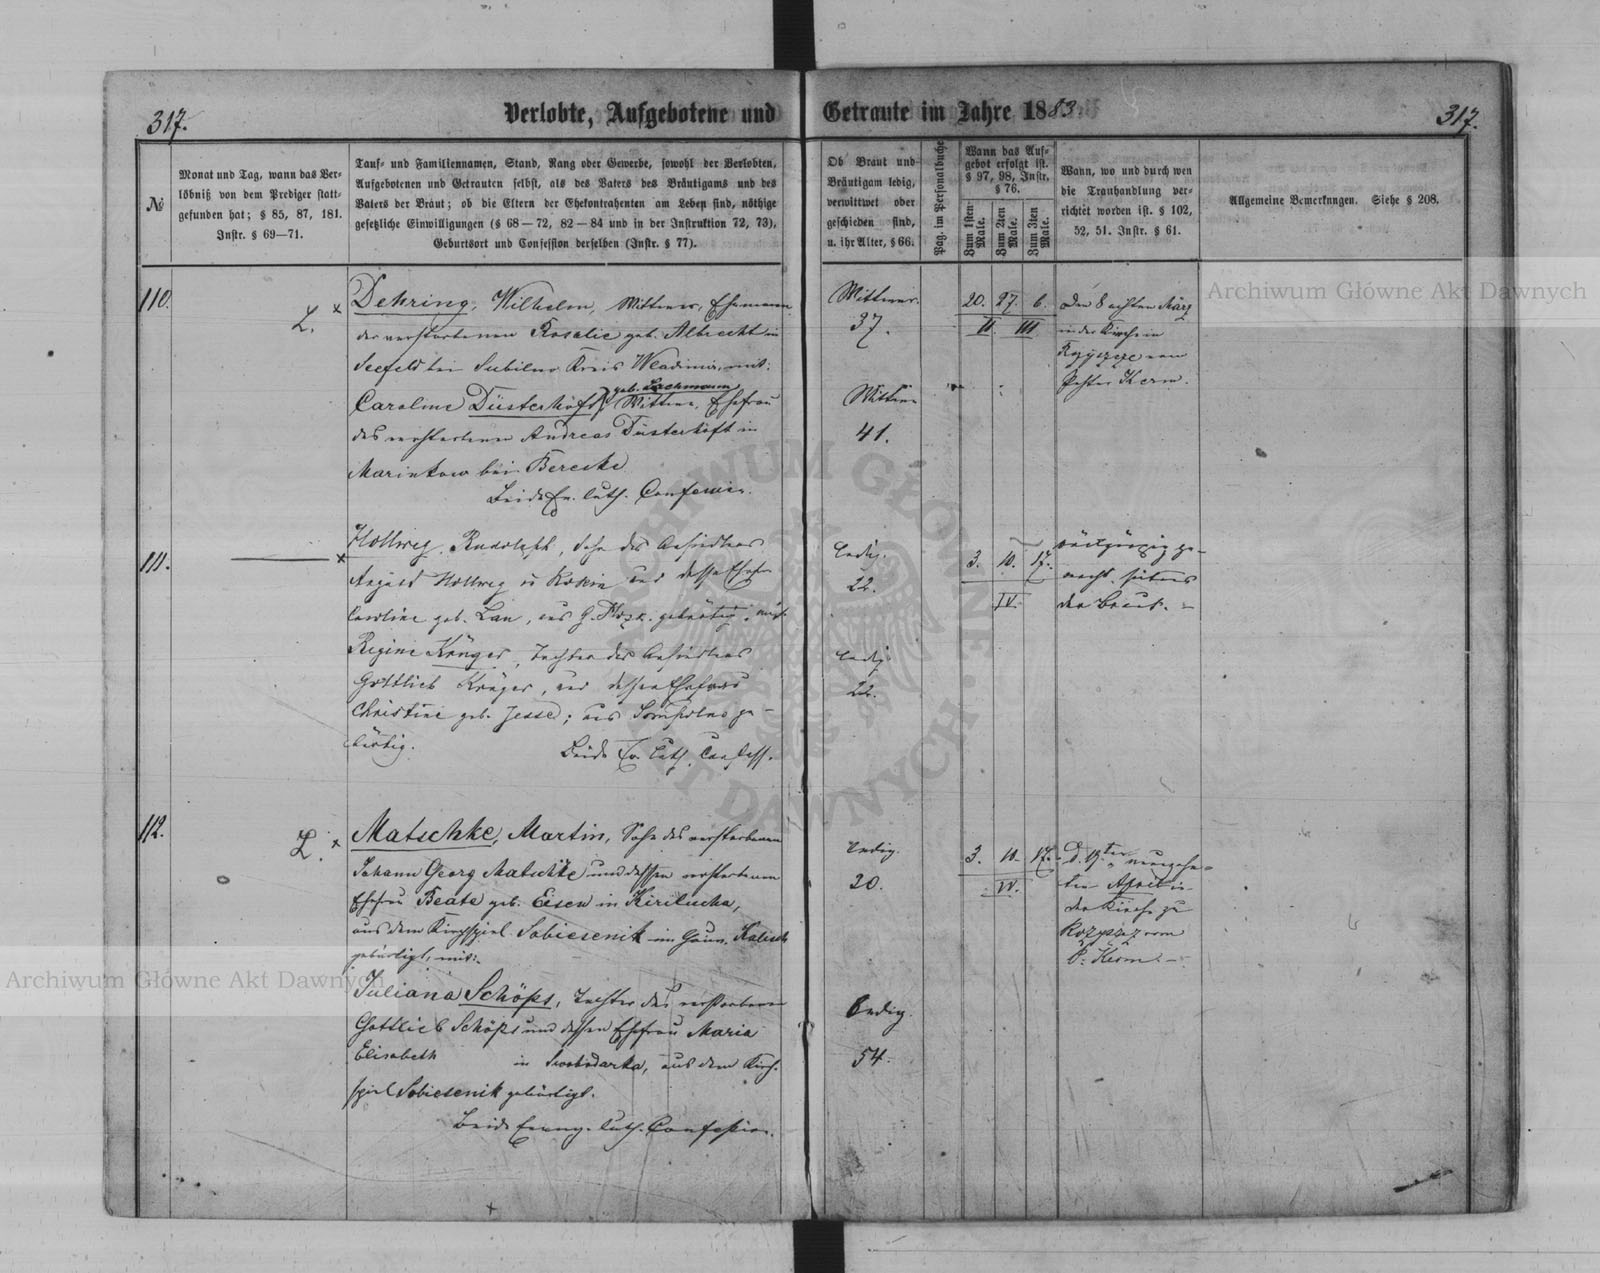 317.
Verlobte, Aufgebotene und Getraute im Jahre 1883.
317.
№
Monat und Tag, wann das Ver-
löbniß von dem Prediger statt-
gefunden hat; § 85, 87, 181.
Instr. § 69—71.
Tauf- und Familiennamen, Stand, Rang oder Gewerbe, sowohl der Verlobten,
Aufgebotenen und Getrauten selbst, als des Vaters des Bräutigams und des
Vaters der Braut; ob die Eltern der Ehekontrahenten am Leben sind, nöthige
gesetzliche Einwilligungen (§ 68—72, 82—84 und in der Instruktion 72, 73),
Geburtsort und Confession derselben (Instr. § 77).
Ob Braut und
Bräutigam ledig,
verwittwet oder
geschieden sind,
u. ihr Alter, § 66.
Pag. im Personalbuche
Wann das Auf-
gebot erfolgt ist.
§ 97, 98, Instr.
§ 76.
Zum 1sten
Male.
Zum 2ten
Male.
Zum 3ten
Male.
Wann, wo und durch wen
die Trauhandlung ver-
richtet worden ist. § 102,
52, 51. Instr. § 61.
Allgemeine Bemerkungen. Siehe § 208.
110.
L.
Dehring, Wilhelm, Wittwer, Ehemann
der verstorbenen Rosalie geb. Albrecht in
Seefeld bei Subilno Kreis Wladimir, mit:
geb. Lachmann
Caroline Düsterhöft, Wittwe, Ehefrau
des verstorbenen Andreas Düsterhöft in
Marinkow bei Bereske
Beide Ev. luth. Confession.
Wittwer.
37.
Wittwe
41.
20. 27. 6.
II. III.
Den 8 achten März
in der Kirche in
Rozyszcze vom
Pastor Kerm.
111.
Hollweg, Rudolph, Sohn des Ansiedlers
August Hollweg in Rokin und dessen Ehefr.
Caroline geb. Lau, aus G. Plozk. gebürtig, mit
Regine Krüger, Tochter des Ansiedlers
Gottlieb Krüger, und dessen Ehefrau
Christine geb. Jesse; aus Sompolno ge-
bürtig.
Beide Ev. Luth. Confess.
Ledig.
22.
Ledig.
22.
3. 10. 17.
IV.
rückgängig ge-
macht seitens
der Braut.
112.
L.
Matschke, Martin, Sohn des verstorbenen
Johann Georg Matschke und dessen verstorbenen
Ehefrau Beate geb. Eisen in Kirilucha,
aus dem Kirchspiel Sobiesenik im Gouv. Kalisch
gebürtigt, mit:
Juliana Schöps, Tochter des verstorbenen
Gottlieb Schöps und dessen Ehefrau Maria
Elisabeth in Swobodarka, aus dem Kirch-
spiel Sobiesenik gebürtigt.
Beide Evang. luth. Confession.
Ledig.
20.
Ledig.
54.
3. 10. 17.
IV.
D. 19ten neunzehn-
ten April in
der Kirche zu
Rozyszcz vom
P. Kerm.
Archiwum Główne Akt Dawnych
Archiwum Główne Akt Dawnych
ARCHIWUM GŁÓWNE AKT DAWNYCH